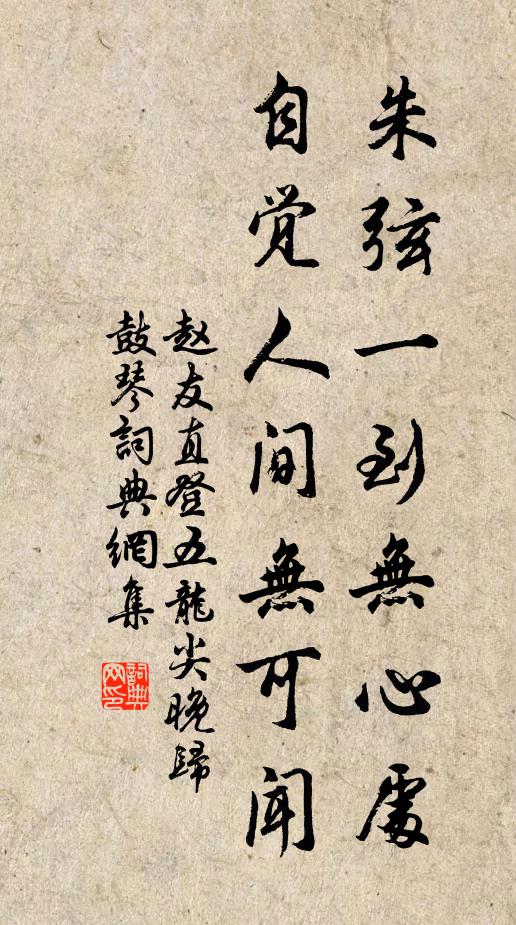 朱弦一到無心處
自觉人间無可闻
赵友直登五龍尖晚歸
鼓琴詞典網集
詞典网印